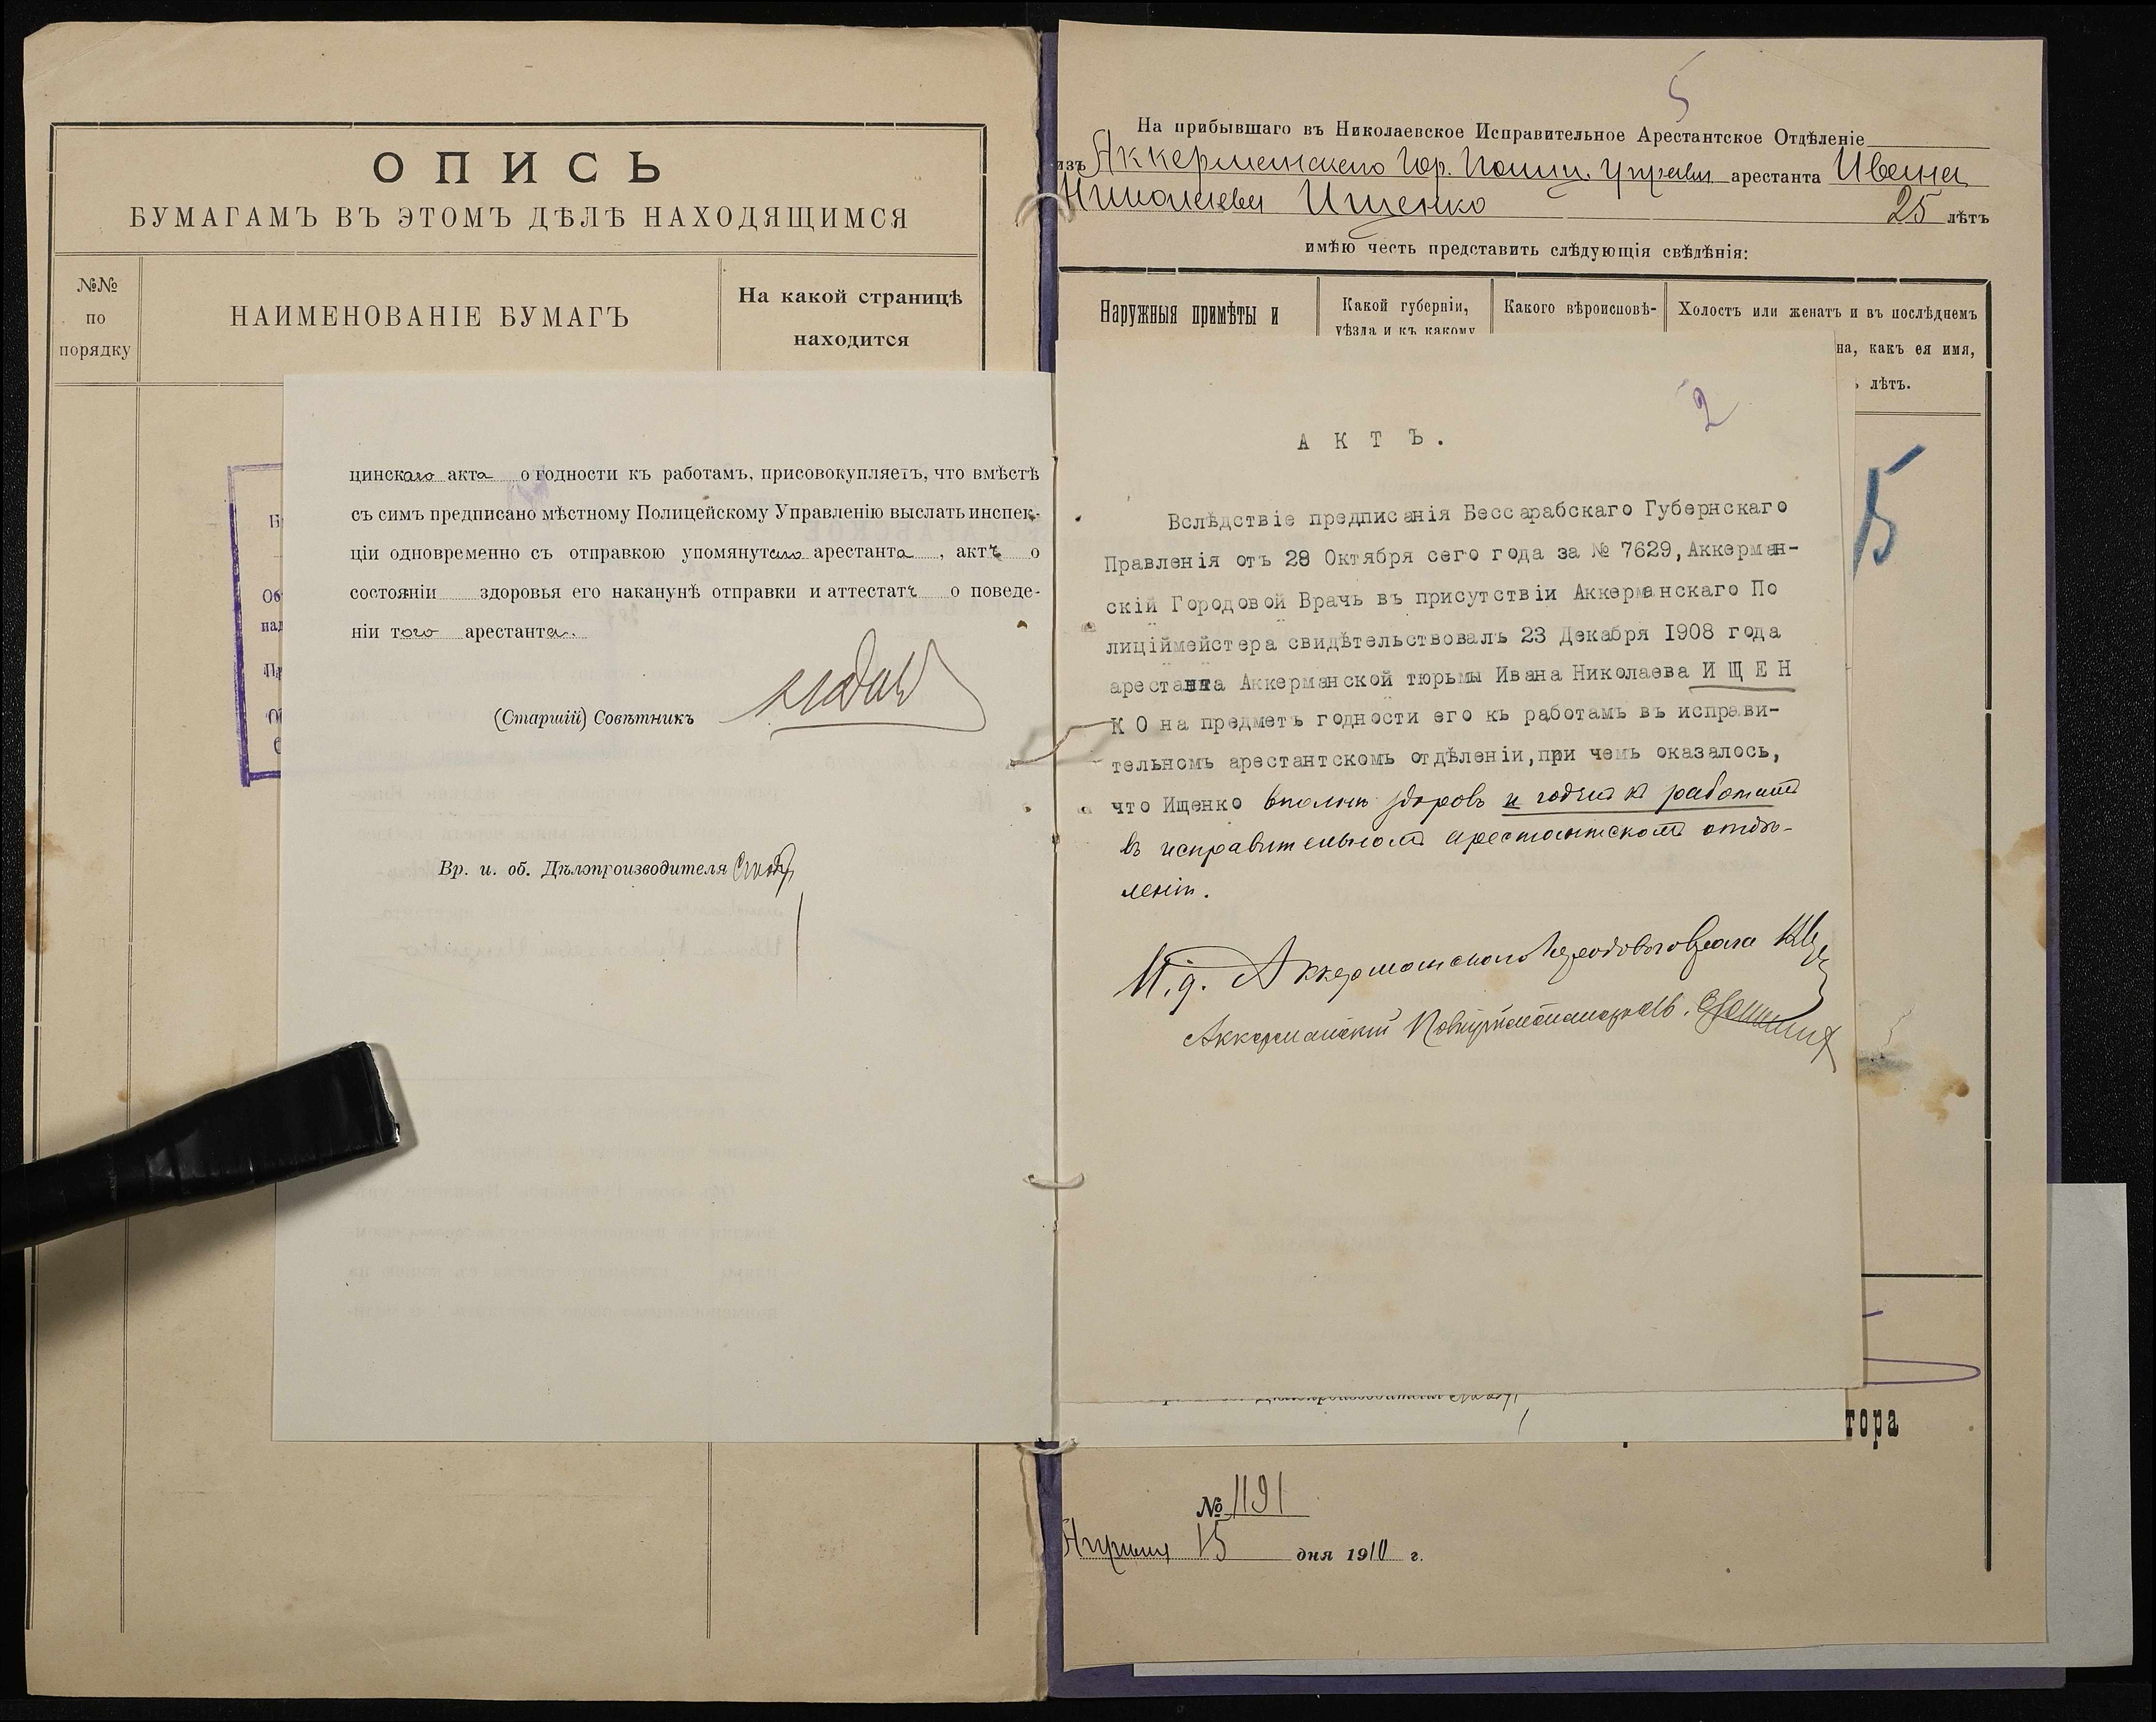 ОПИСЬ
БУМАГАМЪ ВЪ ЭТОМЪ ДѢЛѢ НАХОДЯЩИМСЯ
№№
по
порядку
НАИМЕНОВАНІЕ БУМАГЪ
На какой страницѣ
находится
цинскаго акта о годности къ работамъ, присовокупляетъ, что вмѣстѣ
съ симъ предписано мѣстному Полицейскому Управленію выслать инспек-
ціи одновременно съ отправкою упомянутаго арестанта , актъ о
состояніи здоровья его наканунѣ отправки и аттестатъ о поведе-
ніи того арестанта.
(Старшій) Совѣтникъ
Вр. и. об. Дѣлопроизводителя
5
На прибывшаго въ Николаевское Исправительное Арестантское Отдѣленіе
изъ Аккерманскаго Гор. Полиц. Управл арестанта Ивана
Николаева Ищенко 25 лѣтъ
имѣю честь представить слѣдующія свѣдѣнія:
Наружныя примѣты и
Какой губерніи,
уѣзда и къ какому
Какого вѣроисповѣ-
Холостъ или женатъ и въ послѣднемъ
на, какъ ея имя,
лѣтъ.
2
АКТЪ.
Вслѣдствіе предписанія Бессарабскаго Губернскаго
Правленія отъ 28 Октября сего года за № 7629, Аккерман-
скій Городовой Врачъ въ присутствіи Аккерманскаго По
лиціймейстера свидѣтельствовалъ 23 Декабря 1908 года
арестанта Аккерманской тюрьмы Ивана Николаева ИЩЕН
КО на предметъ годности его къ работамъ въ исправи-
тельномъ арестантскомъ отдѣленіи, при чемъ оказалось,
что Ищенко вполнѣ здоровъ и годенъ къ работамъ
въ исправительномъ арестантскомъ отдѣ-
леніи.
И.д. Аккерманскаго Городового Врача
Аккерманскій Полиціймейстеръ
тора
№ 1191
Апрѣля 15 дня 1910 г.